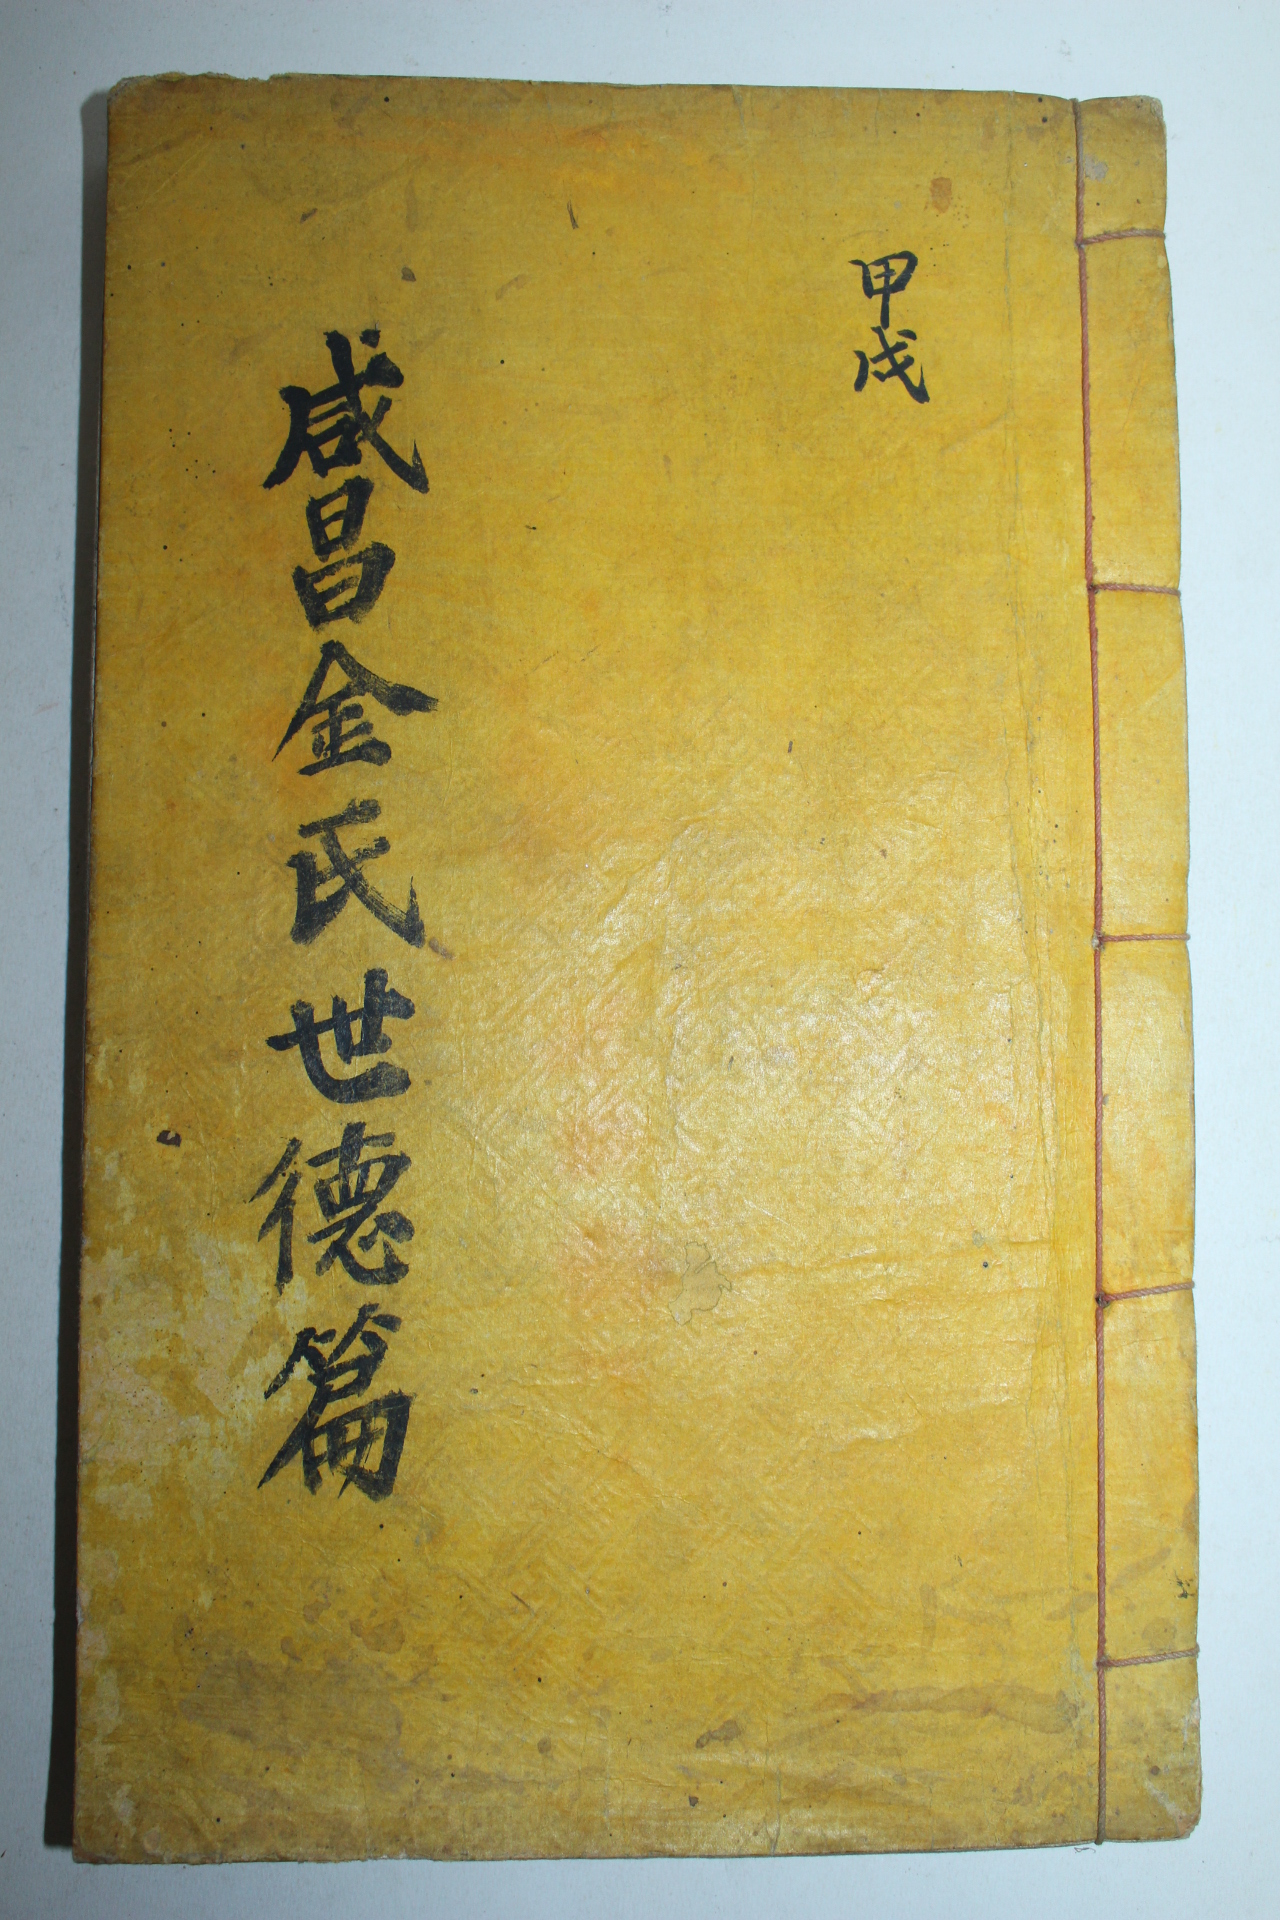 甲戌
咸昌金氏世德篇